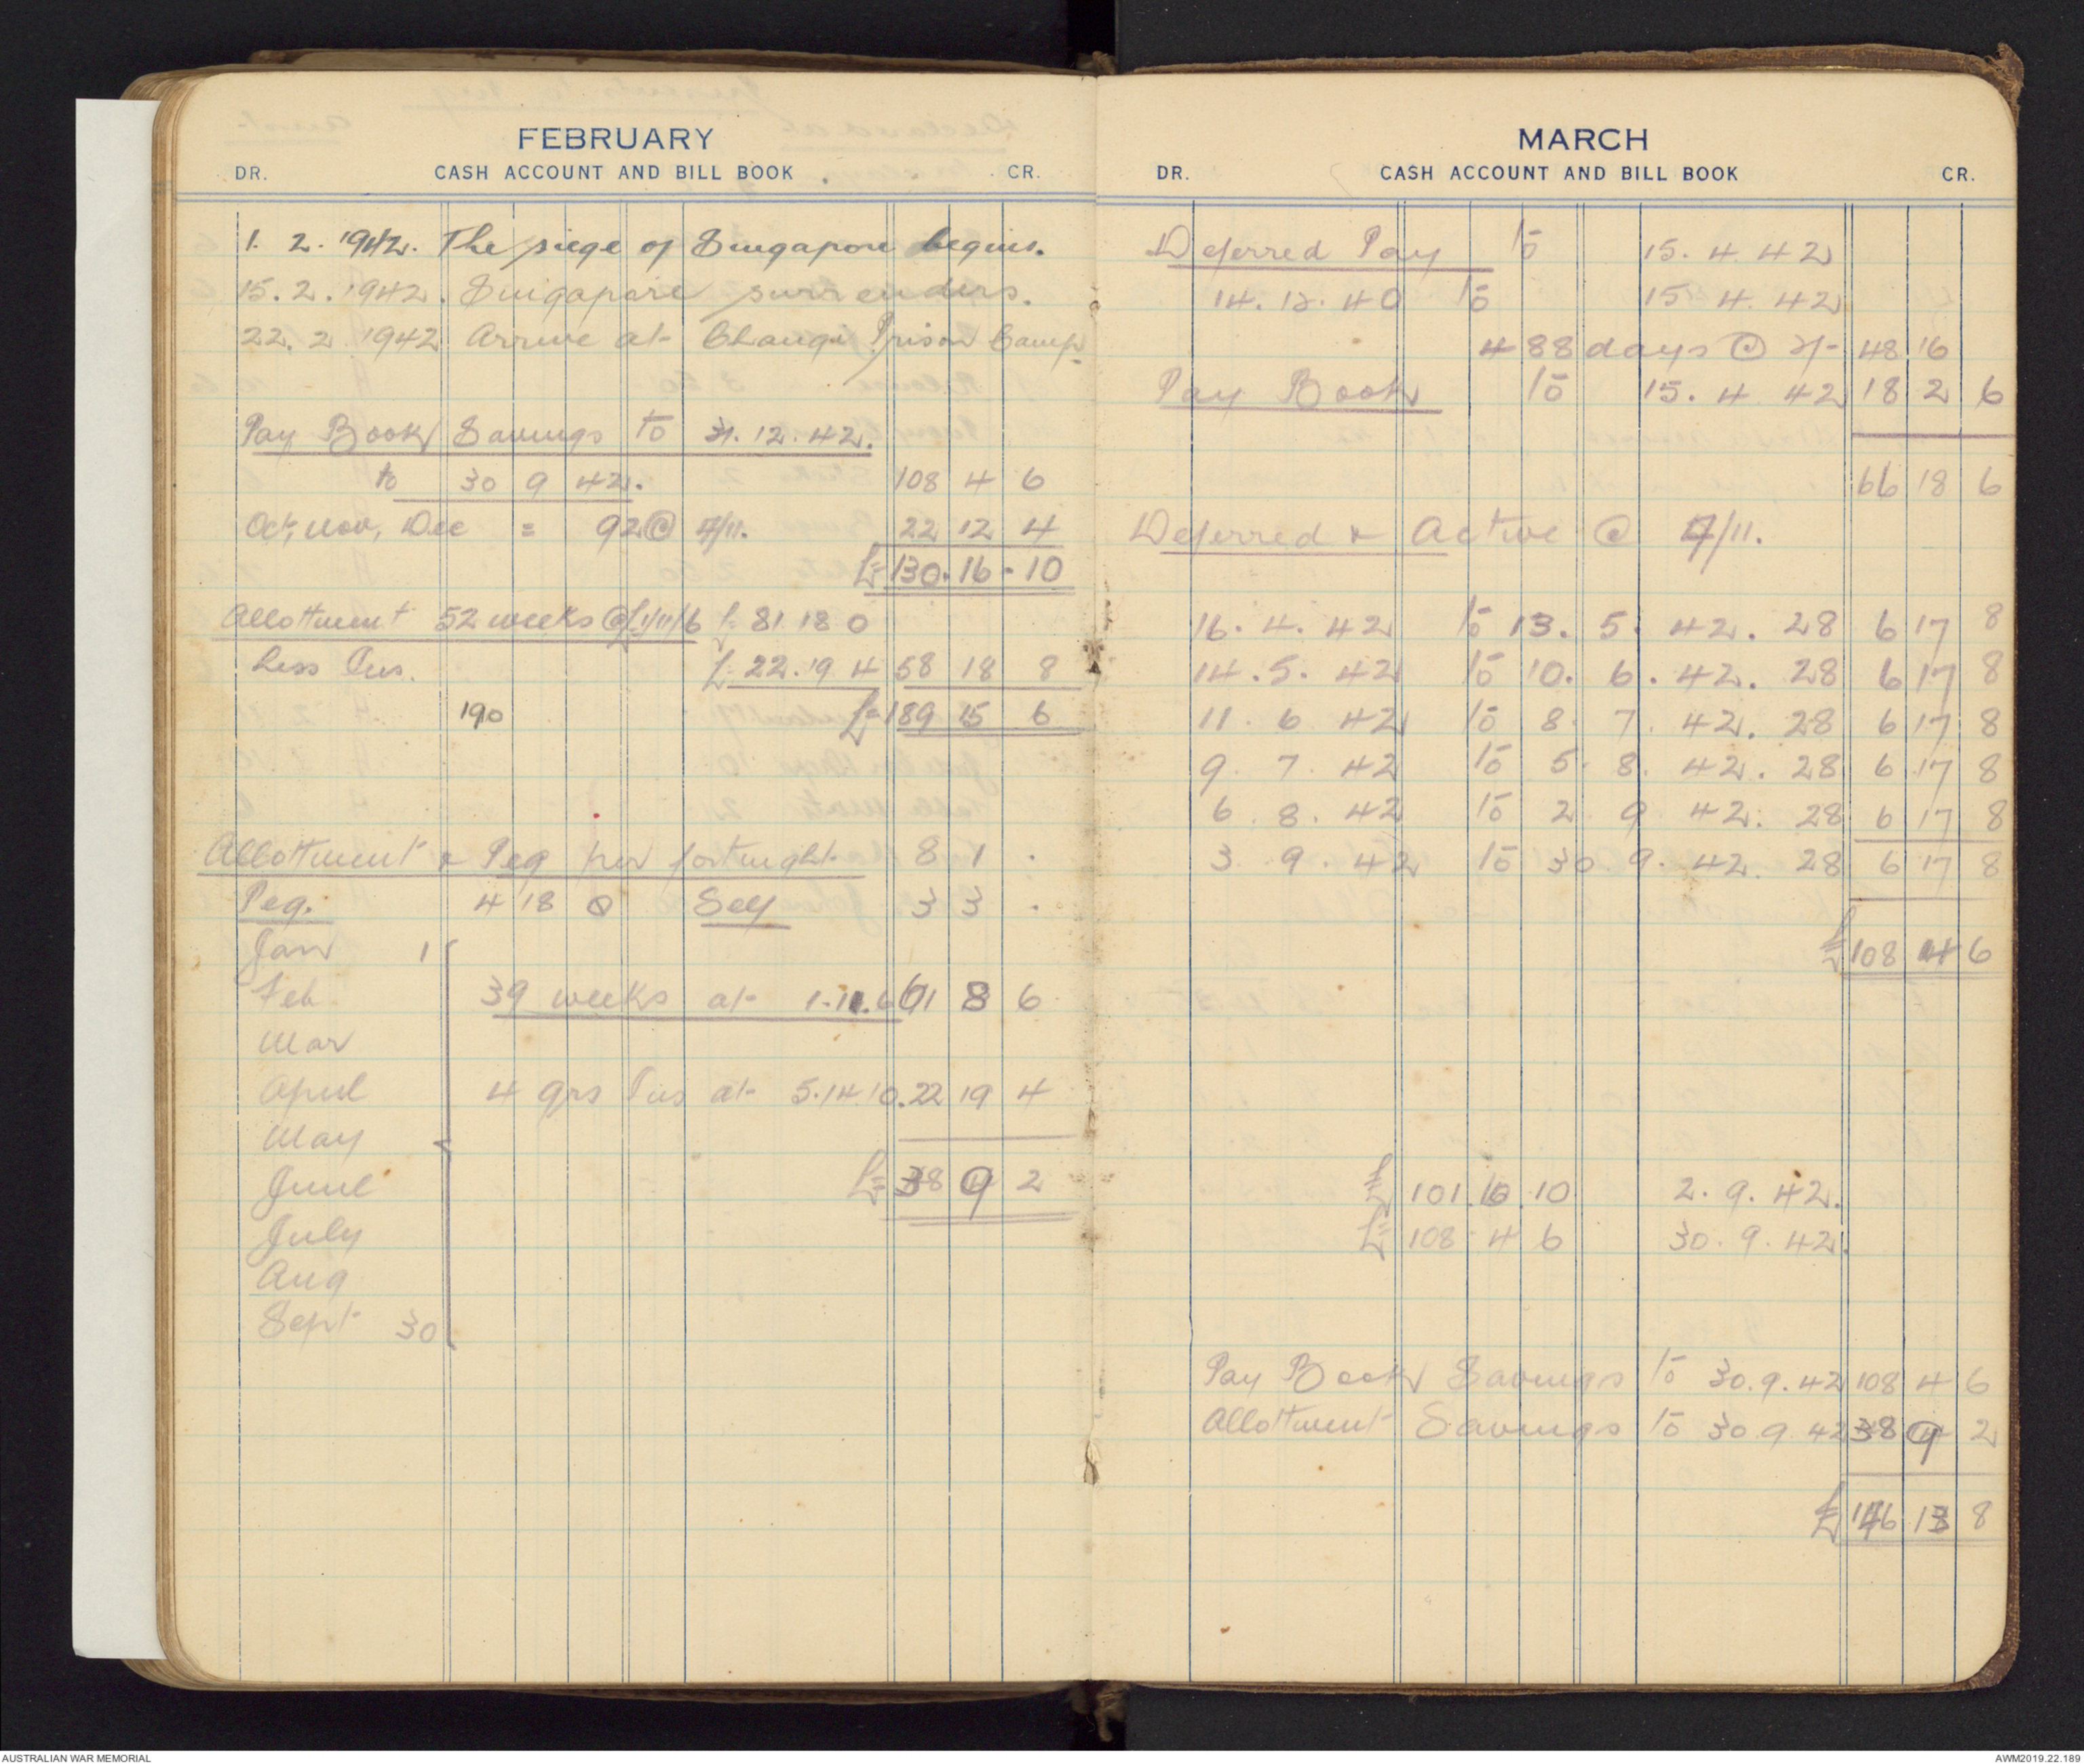 FEBRUARY
DR. CASH ACCOUNT AND BILL BOOK CR.
1. 2. 1942. The siege of Singapore begins.
15. 2. 1942. Singapore surrenders.
22. 2 1942 Arrive at Changi Prison Camp
Pay Book Savings to 31. 12. 42.
to 30 9 42. 108 4 6
Oct, Nov, Dec = 92 @ 4/11. 22 12 4
£ 130. 16. 10
Allotment 52 weeks @ £1/11/6 £ 81 18 0
Less Ins. £ 22. 19 4 58 18 8
190 £ 189 15 6
Allotment & Peg per fortnight 8 1 .
Peg. 4 18 0 Self 3 3 .
Jan 1
Feb. 39 weeks at 1.11.6 61 8 6
Mar
April 4 qrs Ins at 5.14.10. 22 19 4
May
June £ 38 9 2
July
Aug
Sept 30
MARCH
DR. CASH ACCOUNT AND BILL BOOK CR.
Deferred Pay to 15. 4. 42
14. 12. 40 to 15 4. 42
488 days @ 2/- 48 16
Pay Book to 15. 4 42 18 2 6
66 18 6
Deferred & Active @ 4/11.
16. 4. 42 to 13. 5. 42. 28 6 17 8
14. 5. 42 to 10. 6. 42. 28 6 17 8
11. 6 42 to 8. 7. 42. 28 6 17 8
9. 7. 42 to 5. 8. 42. 28 6 17 8
6. 8. 42 to 2 9 42. 28 6 17 8
3 9. 42 to 30 9. 42. 28 6 17 8
£ 108 4 6
£ 101. 16 10 2. 9. 42.
£ 108 4 6 30. 9. 42.
Pay Book Savings to 30. 9. 42 108 4 6
Allotment Savings to 30 9 42 38 9 2
£ 146 13 8
AUSTRALIAN WAR MEMORIAL
AWM2019.22.189